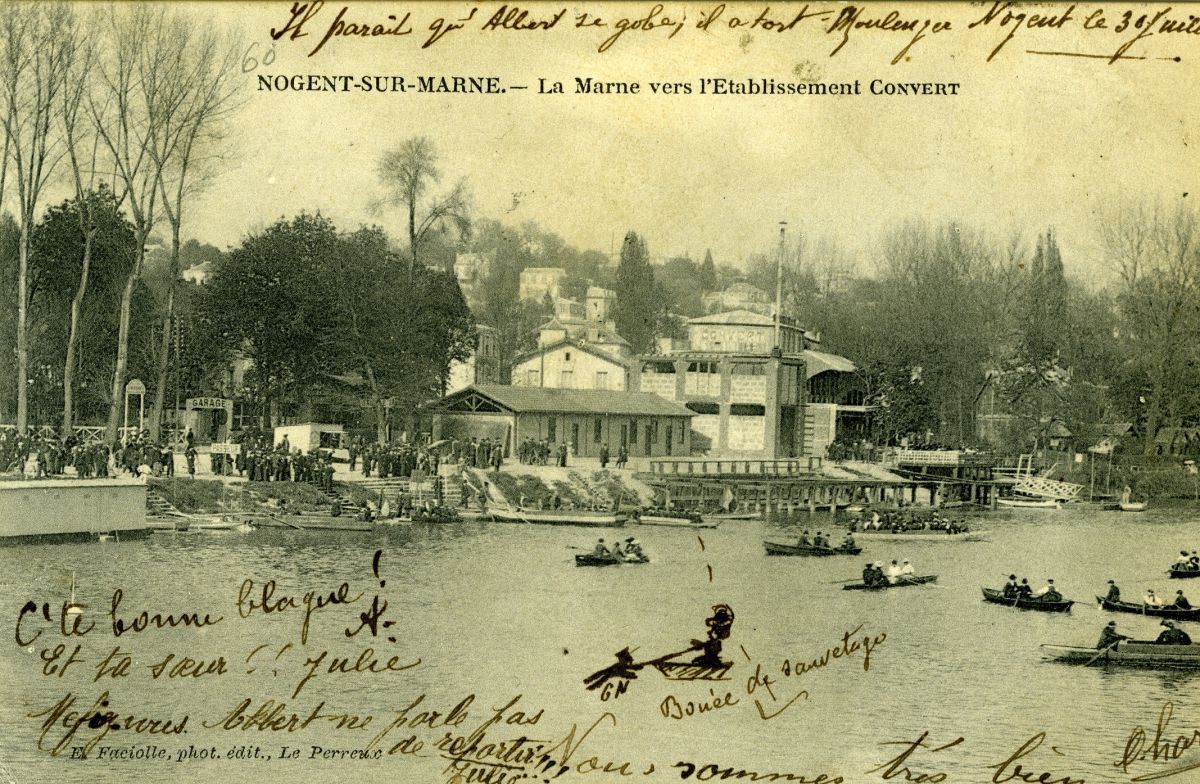 60
Il parait qu'Albert se gobe, il a tort - Moulenger Nogent le 30
NOGENT-SUR-MARNE. — La Marne vers l'Etablissement CONVERT
GARAGE
C'te bonne blague! A.
Et ta sœur!! Julie
Mefiez-vous. Albert ne parle pas
de repartir
Julie!!!
GN
Bouée de sauvetage
Nous sommes très bien
E. Faciolle, phot. édit., Le Perreux